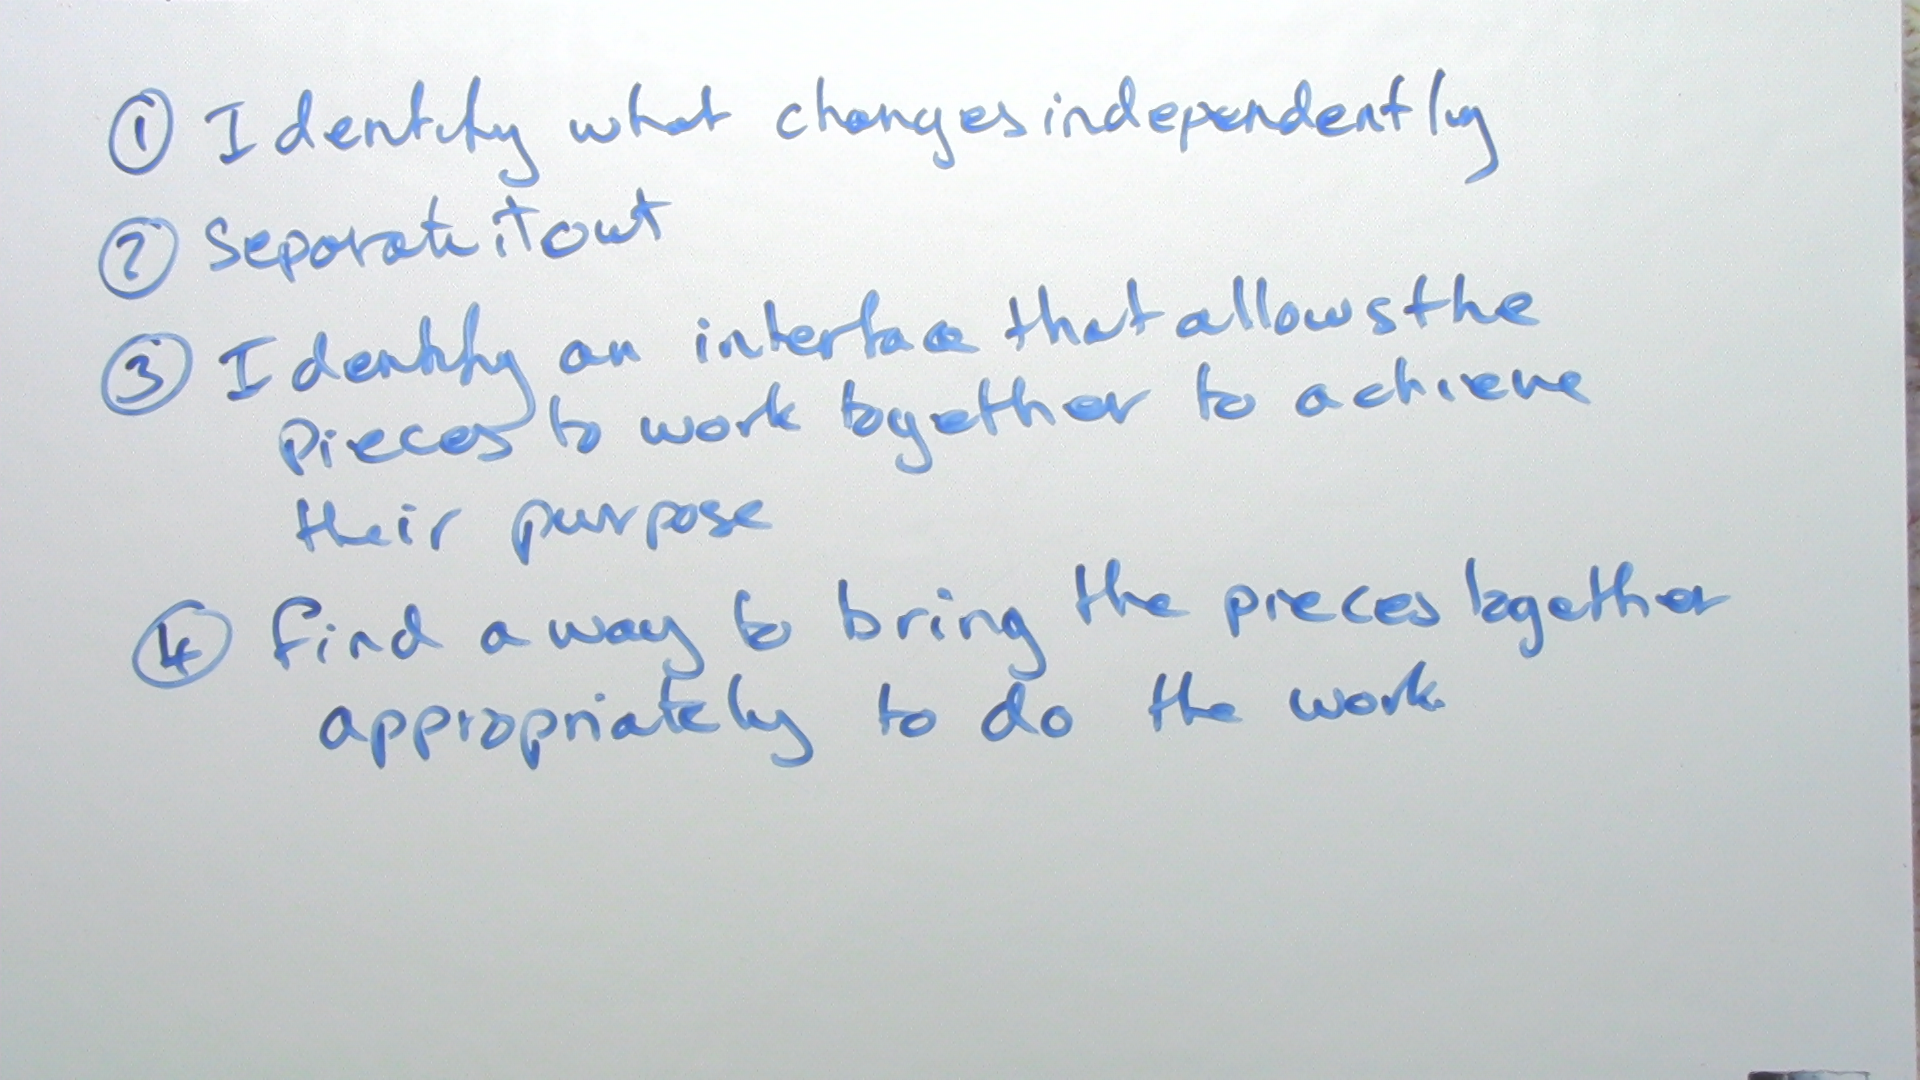 ① Identify what changes independently
② Separate it out
③ Identify an interface that allows the
pieces to work together to achieve
their purpose
④ find a way to bring the pieces together
appropriately to do the work